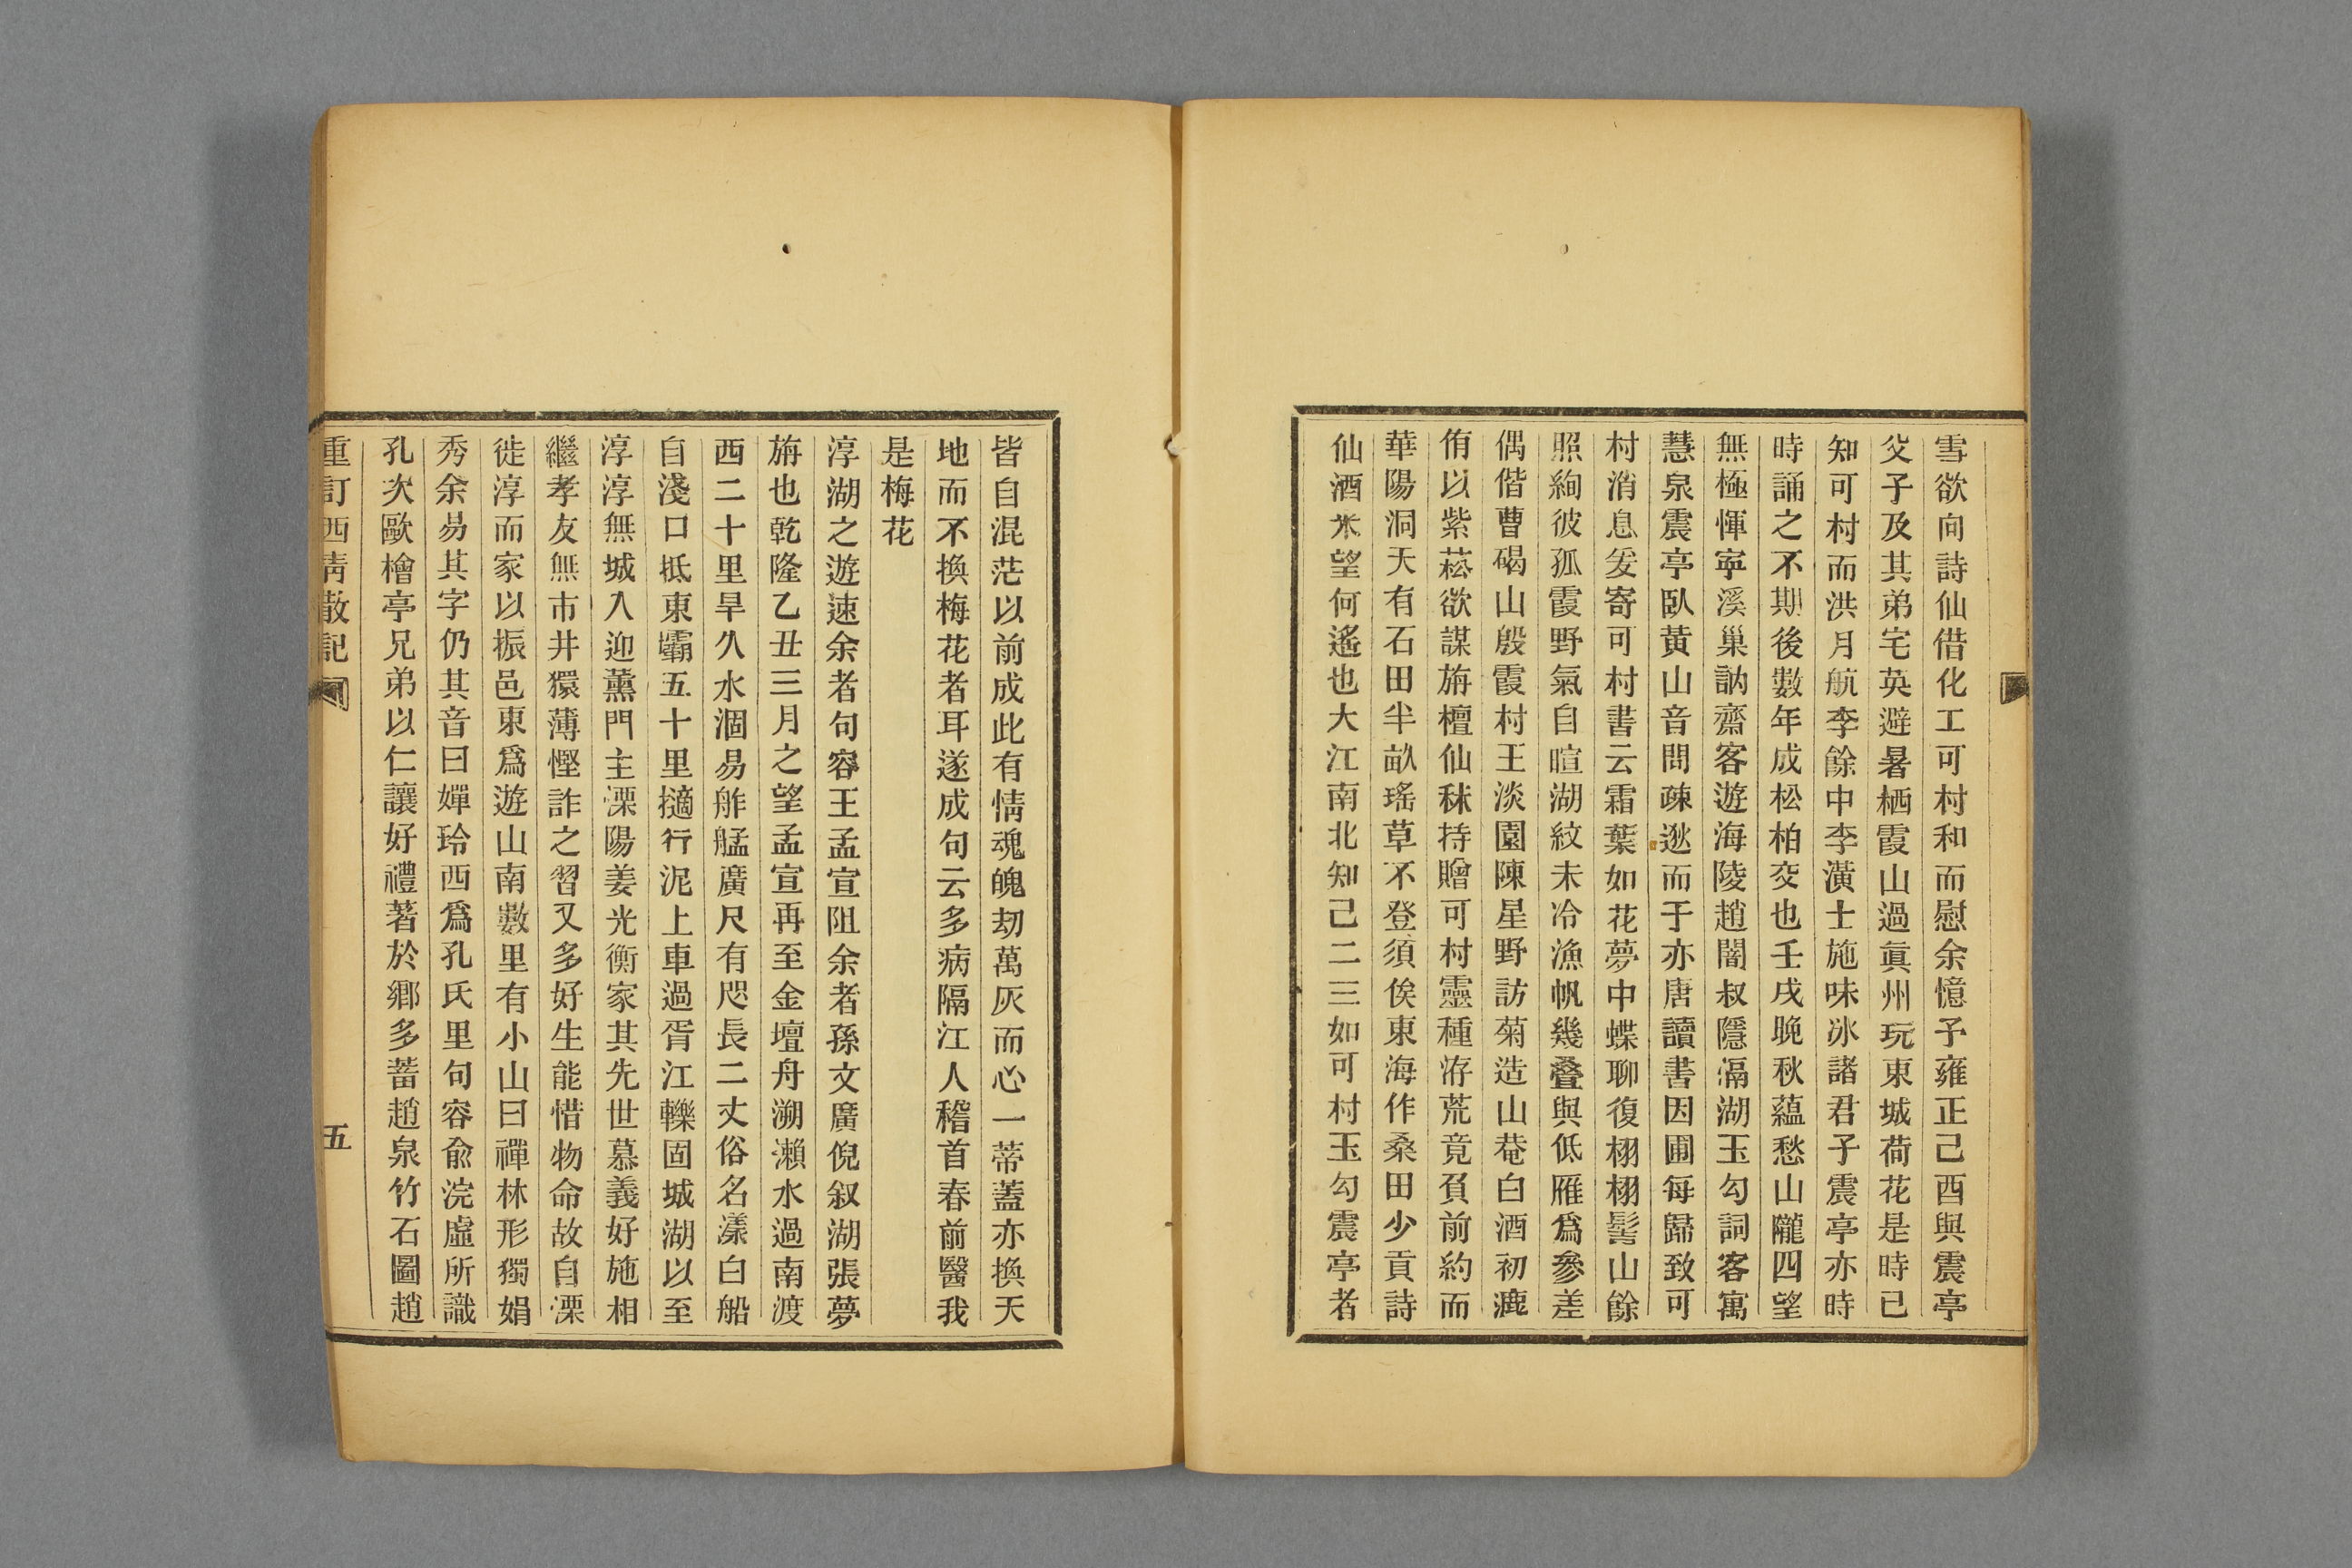 雪欲向詩仙借化工可村和而慰余憶予雍正己酉與震亭
父子及其弟宅英避暑栖霞山過眞州玩東城荷花是時已
知可村而洪月航李餘中李潢士施味冰諸君子震亭亦時
時誦之不期後數年成松柏交也壬戌晚秋蘊愁山隴四望
無極惲寧溪巢訥齋客遊海陵趙闇叔隱滆湖玉勾詞客寓
慧泉震亭臥黃山音問疎逖而于亦唐讀書因圃每歸致可
村消息爰寄可村書云霜葉如花夢中蝶聊復栩栩髻山餘
照絢彼孤霞野氣自暄湖紋未冷漁帆幾叠與低雁爲參差
偶偕曹碭山殷霞村王淡園陳星野訪菊造山菴白酒初漉
侑以紫菘欲謀旃檀仙秫持贈可村靈種洊荒竟負前約而
華陽洞天有石田半畝瑤草不登須俟東海作桑田少貢詩
仙酒米望何遙也大江南北知己二三如可村玉勾震亭者
皆自混茫以前成此有情魂魄刧萬灰而心一蒂蓋亦換天
地而不換梅花者耳遂成句云多病隔江人稽首春前醫我
是梅花
淳湖之遊速余者句容王孟宣阻余者孫文廣倪叙湖張夢
旃也乾隆乙丑三月之望孟宣再至金壇舟溯瀨水過南渡
西二十里旱久水涸易舴艋廣尺有咫長二丈俗名漾白船
自淺口抵東壩五十里擿行泥上車過胥江轢固城湖以至
淳淳無城入迎薰門主溧陽姜光衡家其先世慕義好施相
繼孝友無市井獧薄慳詐之習又多好生能惜物命故自溧
徙淳而家以振邑東爲遊山南數里有小山曰禪林形獨娟
秀余易其字仍其音曰嬋玲西爲孔氏里句容兪浣虛所識
孔次歐檜亭兄弟以仁讓好禮著於鄉多蓄趙泉竹石圖趙
重訂西青散記
五